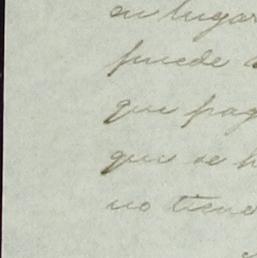 en lugar
puede
que pag
que se h
no tiene